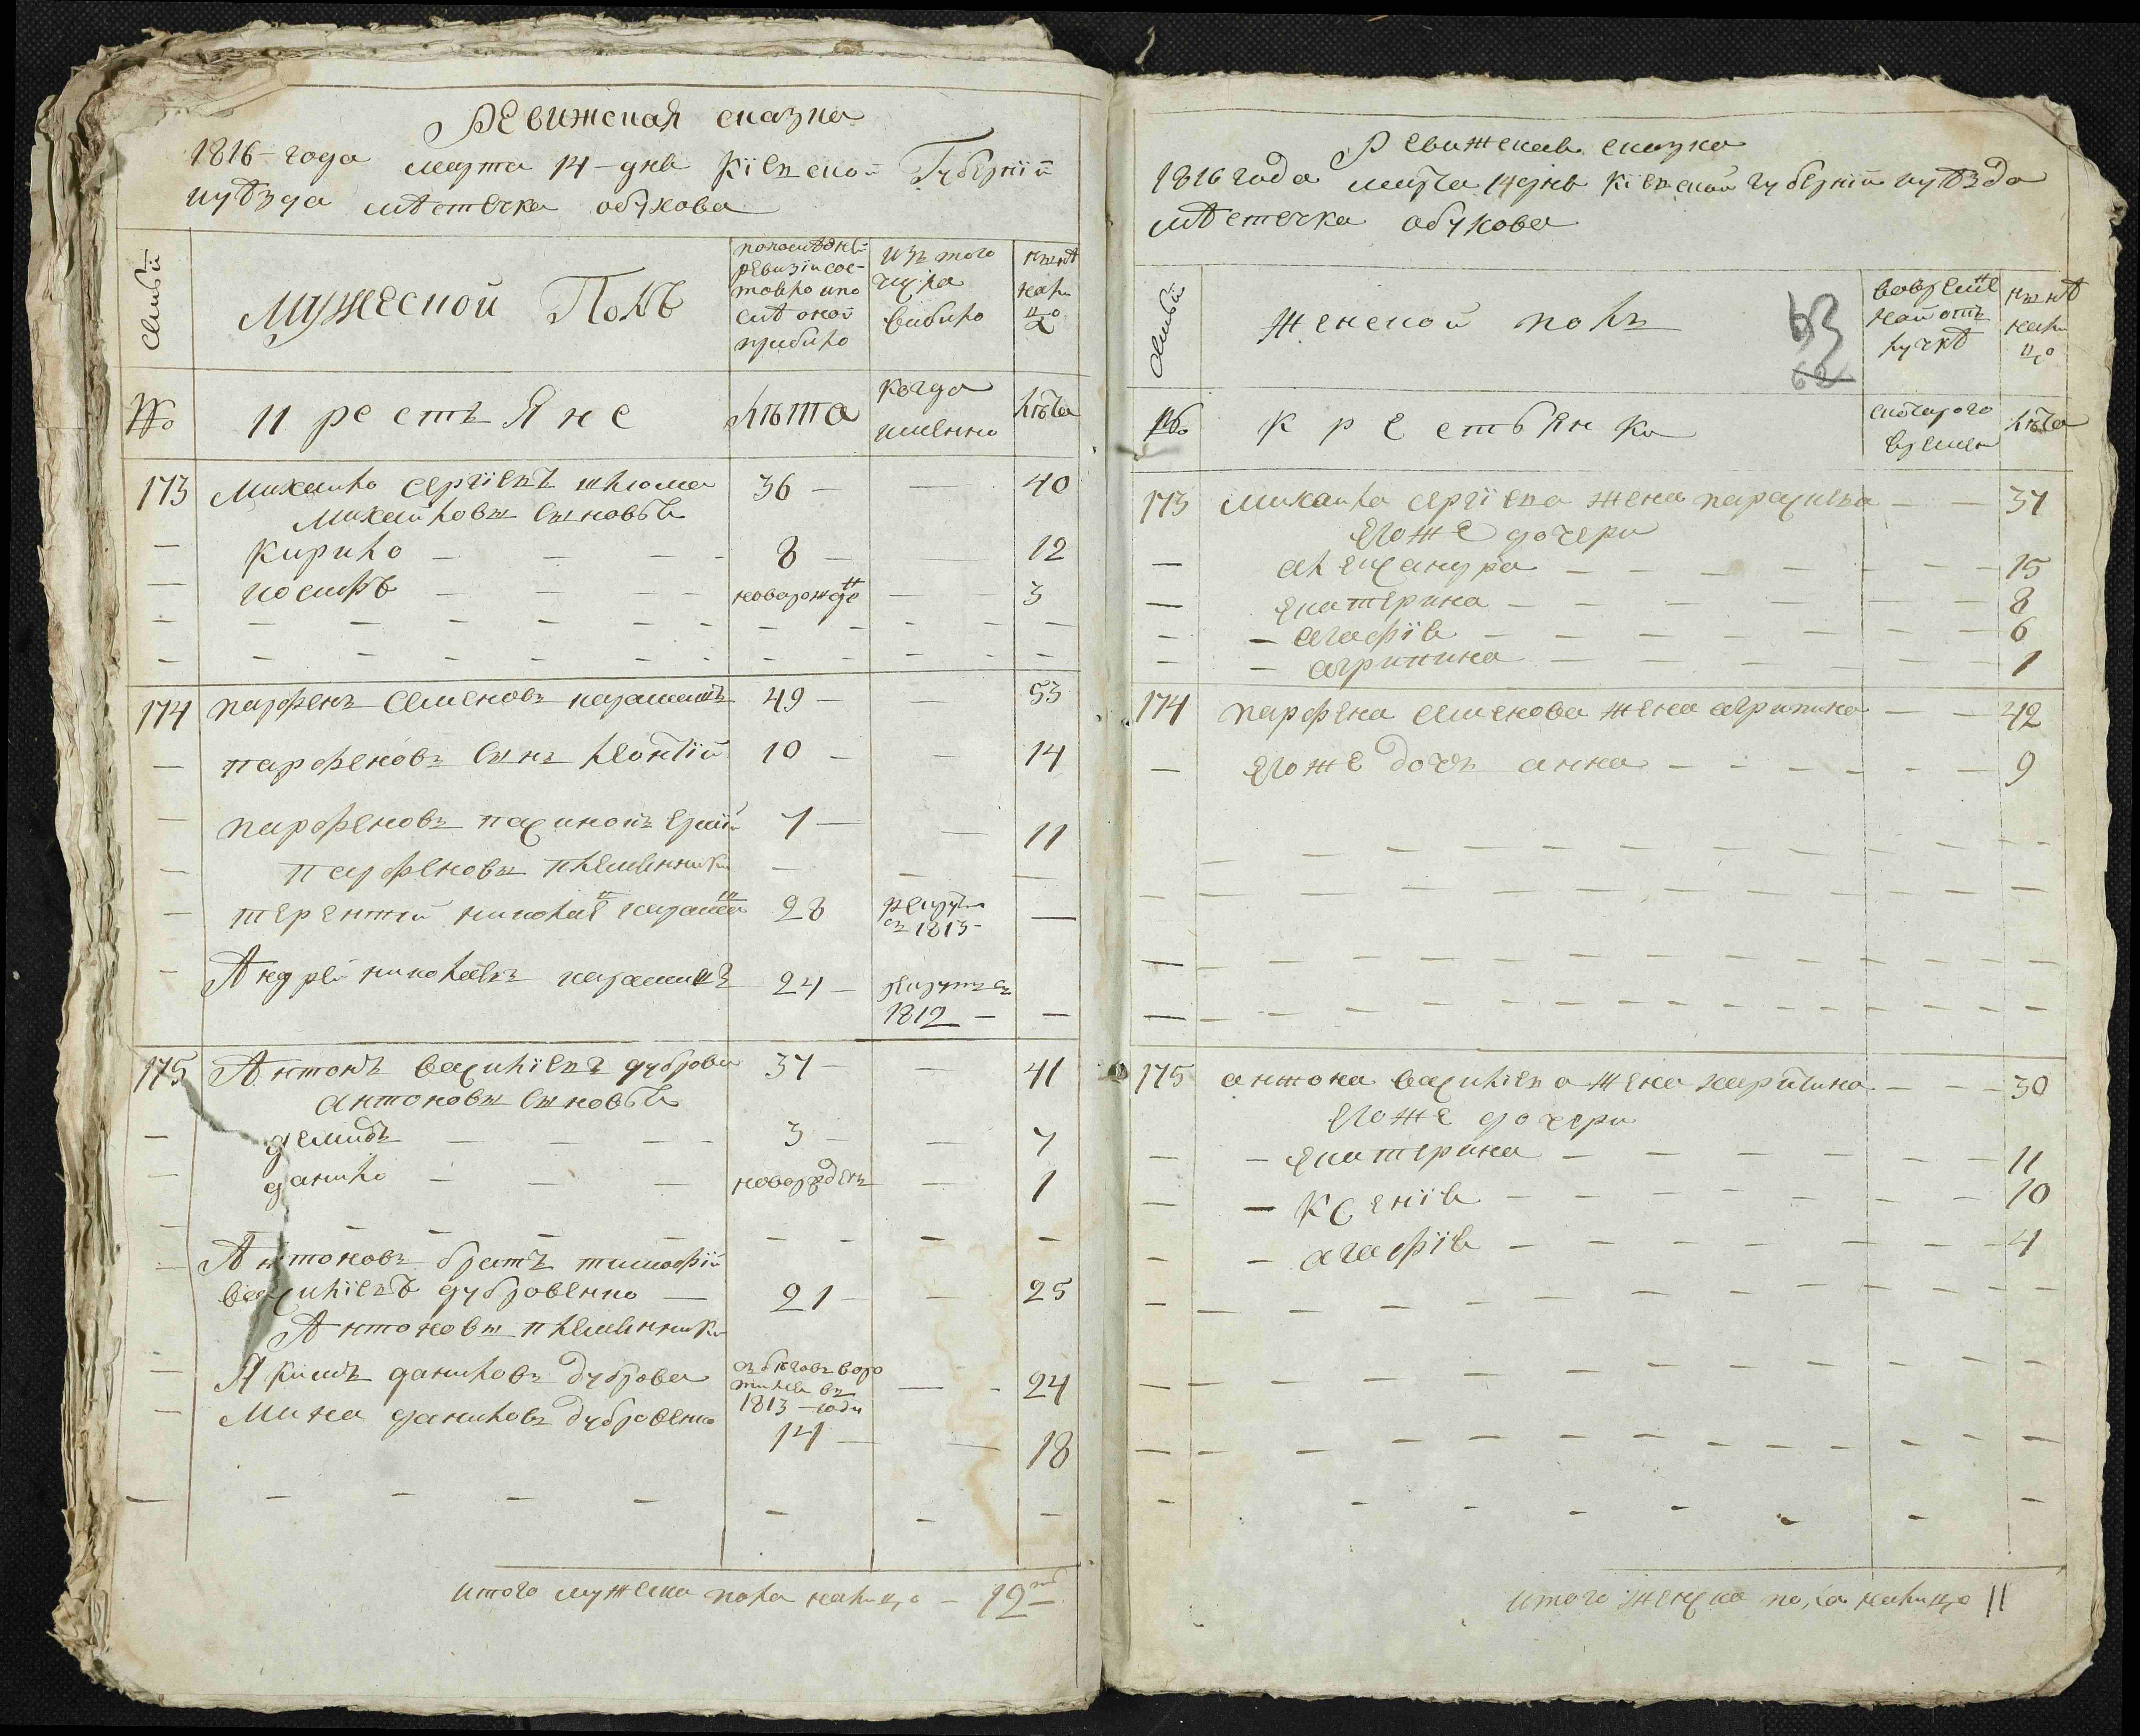 Ревижская сказка
1816 года марта 14 дня Кіевской Губерніи
и уѣзда мѣстечка обухова
Семьи
Мужеской Полъ
по последней
ревизіи сос-
тояло и по
слѣ оной
прибыло
Изъ того
числа
выбыло
Нынѣ
нали
цо
№
крестьяне
лѣта
когда
именно
лѣта
173 Михайло Сергіевъ 36 — — 40
Михайловы сыновья
— Кирило — — — 8 — — 12
— иосифъ — — — новорожде — — 3
174 парфенъ Семеновъ 49 — — 53
— парфеновъ сынъ леонтій 10 — — 14
— парфеновъ пасинокъ 7 — — 11
— парфеновы племянники — — —
— терентій 28 рекрутъ
съ 1813 —
— Андрей николаевъ 24 — рекрутъ съ
1812 — —
175 Антонъ василіевъ дуброва 37 — — 41
антоновы сыновья
— демидъ — — — 3 — — 7
— данило — — — новорожденъ — 1
— Антоновъ братъ тимофій
василіевъ дубровенко — 21 — — 25
Антоновы племянники
— Якимъ даниловъ дуброва съ беговъ воро
тился въ
1813 году — - 24
— Мина даниловъ дубровенко 14 — — 18
итого мужеска пола налицо — 12
Ревижская сказка
1816 года марта 14 дня Кіевской губерніи и уѣзда
мѣстечка обухова
Семьи
женской полъ
63
62
во време
ной отъ
лучкѣ
нынѣ
нали
цо
№
крестьянки
с которого
времен
лѣта
173 михайла сергіева жена параскева — — 37
Егоже дочери
— александра — — — 15
— екатерина — — — 8
— — агафія — — — 6
— — агрипина — — — 1
174 парфена семенова жена агрипина — — 42
— егоже дочь анна — — — 9
175 антона василіева жена харитина — — — 30
егоже дочери
— — екатерина — — — 11
— — Ксенія — — — 10
— — агафія — — — 4
итого женска пола налицо 11